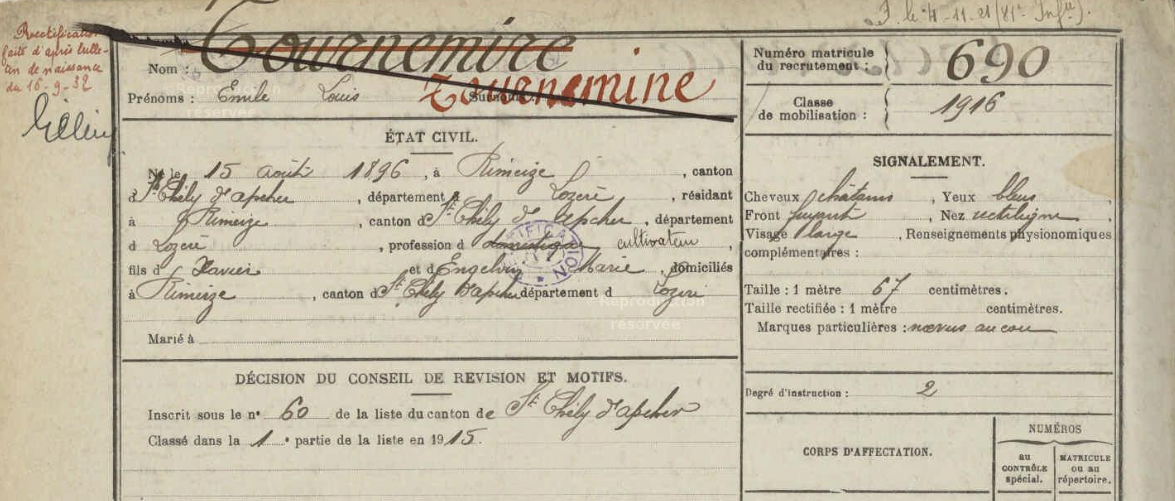 F. le 4-11-21 (81e Infie).
Rectification
faite d'après bulle-
tin de naissance
du 16-9-32
Nom : Tournemire
Tournemine
Prénoms : Emile Louis Surnom
Numéro matricule
du recrutement : 690
Classe
de mobilisation : 1916
ÉTAT CIVIL.
Né le 15 août 1896, à Rimeize, canton
d St Chély d'apcher, département d Lozère, résidant
à Rimeize, canton d St Chély d'Apcher, département
d Lozère, profession d domestique cultivateur,
fils d Xavier et d Engelvin Marie, domiciliés
à Rimeize, canton d St Chély d'apcher département d Lozère
Marié à
SIGNALEMENT.
Cheveux châtains, Yeux bleus,
Front fuyant, Nez rectiligne,
Visage large, Renseignements physionomiques
complémentaires :
Taille : 1 mètre 67 centimètres.
Taille rectifiée : 1 mètre centimètres.
Marques particulières : nœvus au cou
Degré d'instruction : 2
DÉCISION DU CONSEIL DE REVISION ET MOTIFS.
Inscrit sous le n° 60 de la liste du canton de St Chély d'apcher
Classé dans la 1e partie de la liste en 1915.
CORPS D'AFFECTATION.
NUMÉROS
au
CONTRÔLE
spécial.
MATRICULE
ou au
répertoire.
Reproduction
réservée